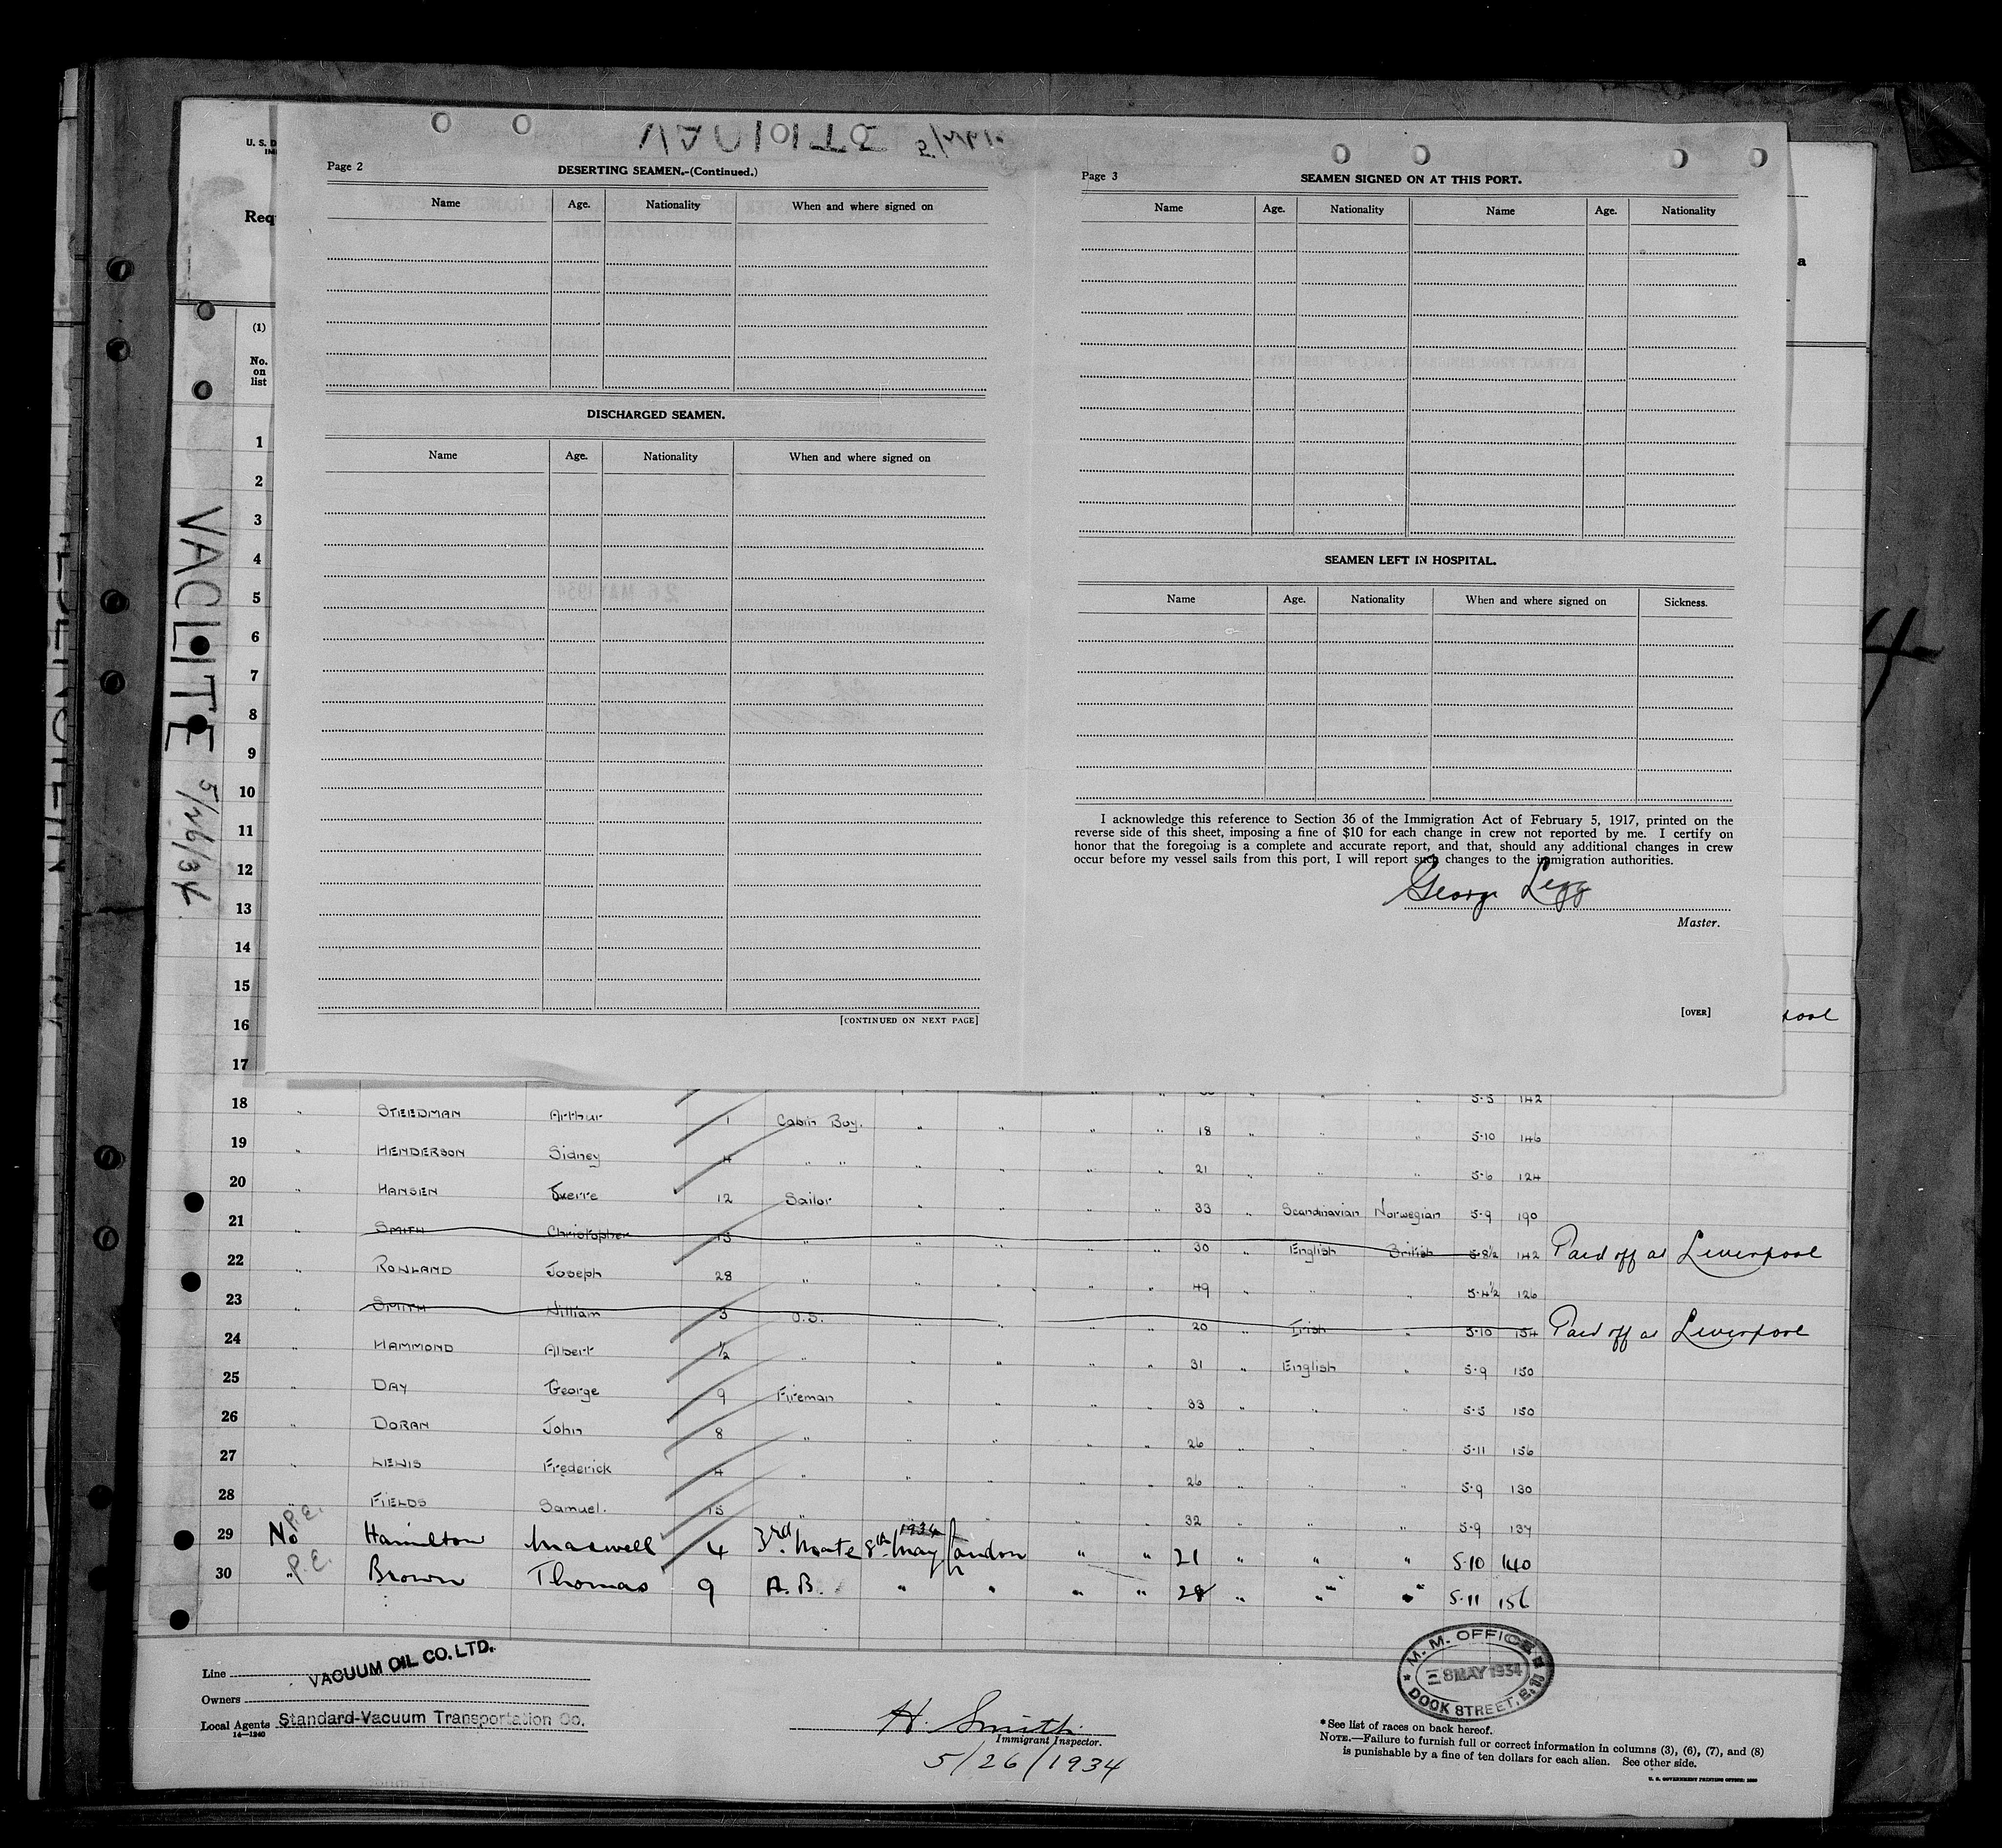 U. S. D
IM
Req
(1)
No.
on
list
VACLITE 5/26/34
a
4
Page 2
DESERTING SEAMEN.-(Continued.)
Name Age. Nationality When and where signed on
DISCHARGED SEAMEN.
Name Age. Nationality When and where signed on
[CONTINUED ON NEXT PAGE]
Page 3
SEAMEN SIGNED ON AT THIS PORT.
Name Age. Nationality Name Age. Nationality
SEAMEN LEFT IN HOSPITAL.
Name Age. Nationality When and where signed on Sickness.
I acknowledge this reference to Section 36 of the Immigration Act of February 5, 1917, printed on the
reverse side of this sheet, imposing a fine of $10 for each change in crew not reported by me. I certify on
honor that the foregoing is a complete and accurate report, and that, should any additional changes in crew
occur before my vessel sails from this port, I will report such changes to the immigration authorities.
George Legg
Master.
[OVER]
1
2
3
4
5
6
7
8
9
10
11
12
13
14
15
16 pool
17 5-5 142
18 " STEEDMAN Arthur 1 Cabin Boy. " " " " 18 " " " 5-10 146
19 " HENDERSON Sidney 4 " " " " " " 21 " " " 5-6 124
20 " HANSEN Sverre 12 Sailor " " " " 33 " Scandinavian Norwegian 5-9 190
21 " SMITH Christopher 15 " " " " " 30 " English British 5-8½ 142 Paid off at Liverpool
22 " ROWLAND Joseph 28 " " " " " 49 " " " 5-4½ 126
23 " SMITH William 3 O.S. " " " " 20 " Irish " 5-10 154 Paid off at Liverpool
24 " HAMMOND Albert ½ " " " " " 31 " English " 5-9 150
25 " DAY George 9 Fireman " " " " 33 " " " 5-5 150
26 " DORAN John 8 " " " " " 26 " " " 5-11 156
27 " LEWIS Frederick 4 " " " " " 26 " " " 5-9 130
28 " FIELDS Samuel. 15 " " " " " 32 " " " 5-9 137
29 No P.E. Hamilton Maxwell 4 3rd Mate 8th May 1934 London " " 21 " " " 5-10 140
30 " P.E. Brown Thomas 9 A.B. " " " " 28 " " " 5-11 156
Line VACUUM OIL CO. LTD.
Owners
Local Agents Standard-Vacuum Transportation Co.
14—1240
H. Smith
Immigrant Inspector.
5/26/1934
M. M. OFFICE
8 MAY 1934
DOCK STREET, E.
*See list of races on back hereof.
NOTE.—Failure to furnish full or correct information in columns (3), (6), (7), and (8)
is punishable by a fine of ten dollars for each alien. See other side.
U. S. GOVERNMENT PRINTING OFFICE: